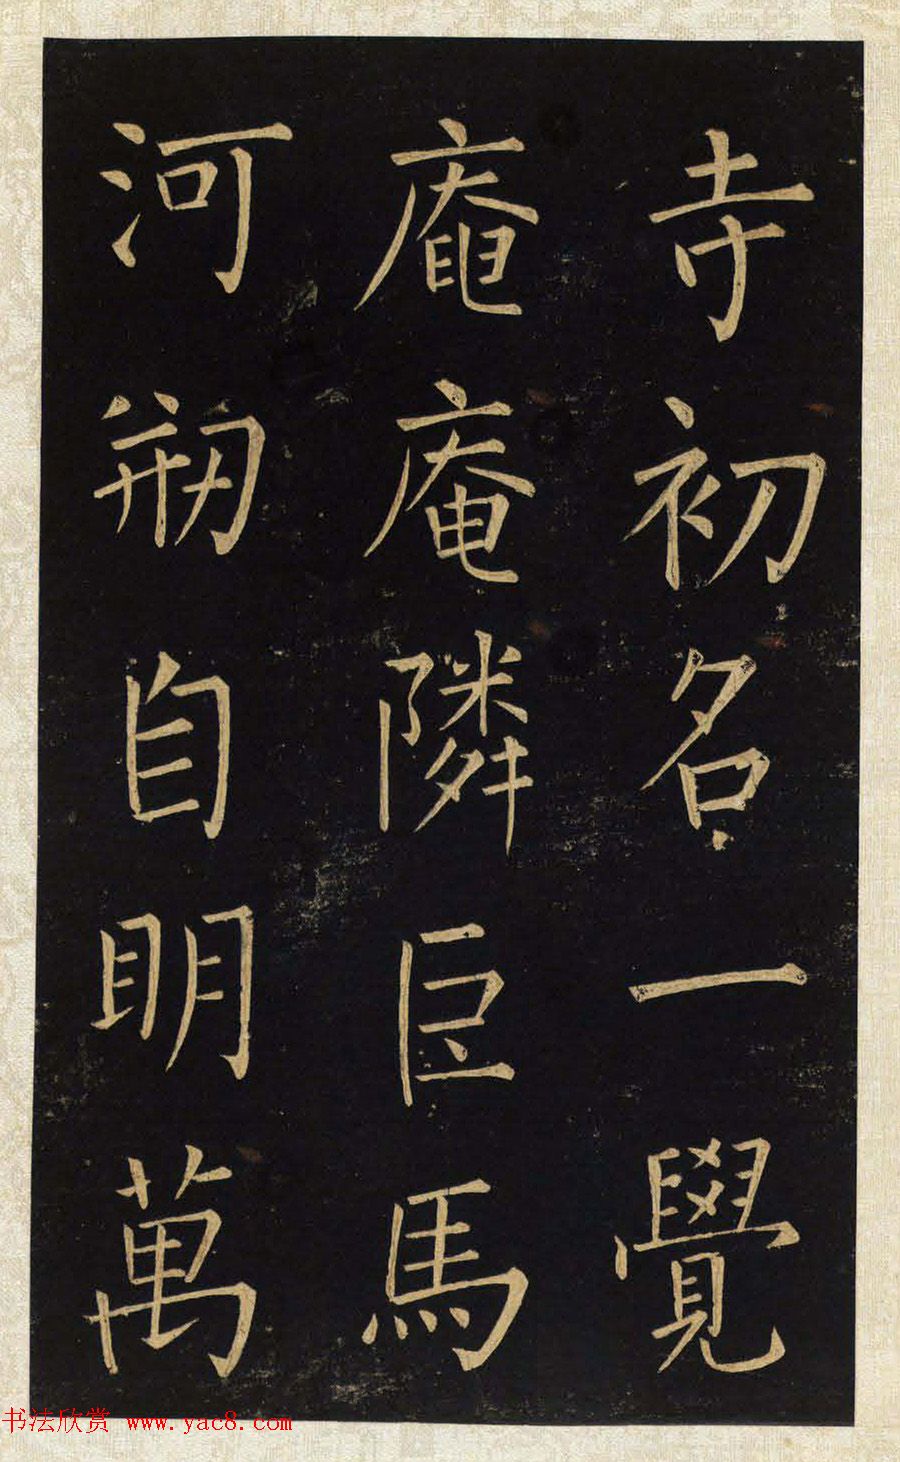 寺初名一覺
庵庵隣臣馬
河剏自眀萬
书法欣赏 www.yac8.com